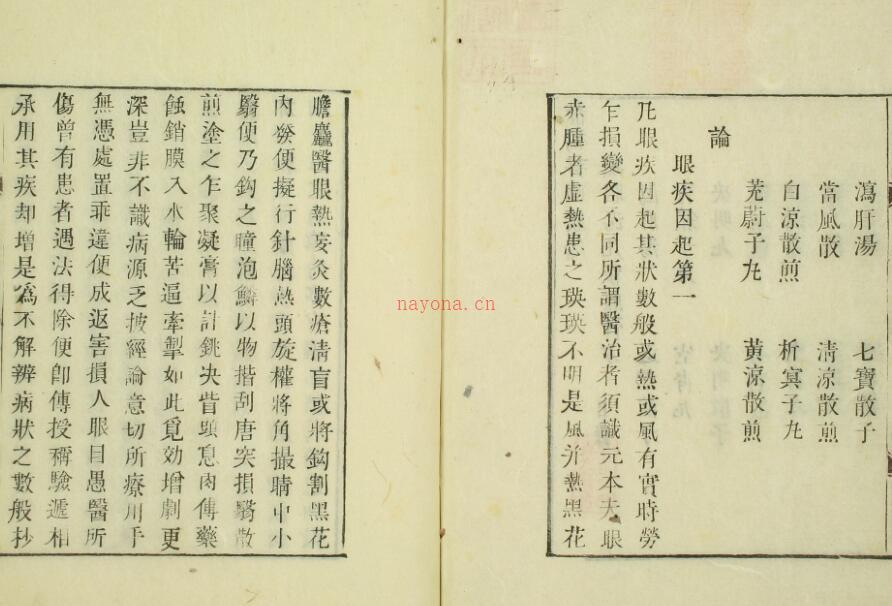 瀉肝湯 七寶散子
當風散 清涼散煎
白涼散煎 析寞子丸
茺蔚子丸 黃涼散煎
論
眼疾因起第一
凡眼疾因起其狀數般或熱或風有實時勞
乍損變各不同所謂醫治者須識元本夫眼
赤腫者虛熱患之瑛瑛不明是風并熱黑花
膽麤醫眼熱妄灸數瘡淸盲或將鈎割黑花
內發便擬行針腦熱頭旋權將角撮睛中小
翳便乃鈎之瞳泡鱗以物揩刮唐突損翳散
煎塗之乍聚凝膏以計銚決眥頭息肉傅藥
蝕銷膜入水輪苦逼牽掣如此覓効增劇更
深豈非不識病源乏披經論意切所療用手
無憑處置乖違便成返害損人眼目愚醫所
傷曾有患者遇法得除便卽傳授稱驗遞相
承用其疾却增是爲不解辨病狀之數般抄
nayona.cn